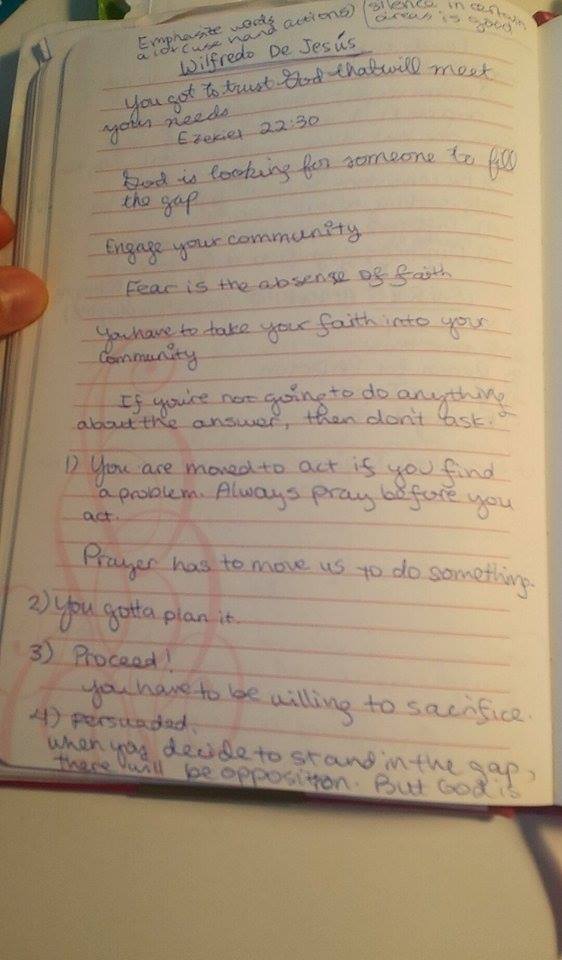 Emphasize words actions)
(silence in certain
areas is good
a lot (use hand
Wilfredo De Jesús
You got to trust God that will meet
your needs
Ezekiel 22:30
God is looking for someone to fill
the gap
Engage your community
Fear is the absense of faith
You have to take your faith into your
community
If you're not going to do anything
about the answer, then don't ask."
1) You are moved to act if you find
a problem. Always pray before you
act.
Prayer has to move us to do something.
2) You gotta plan it.
3) Proceed!
You have to be willing to sacrifice.
4) persuaded.
when you decide to stand in the gap,
there will be opposition. But God is